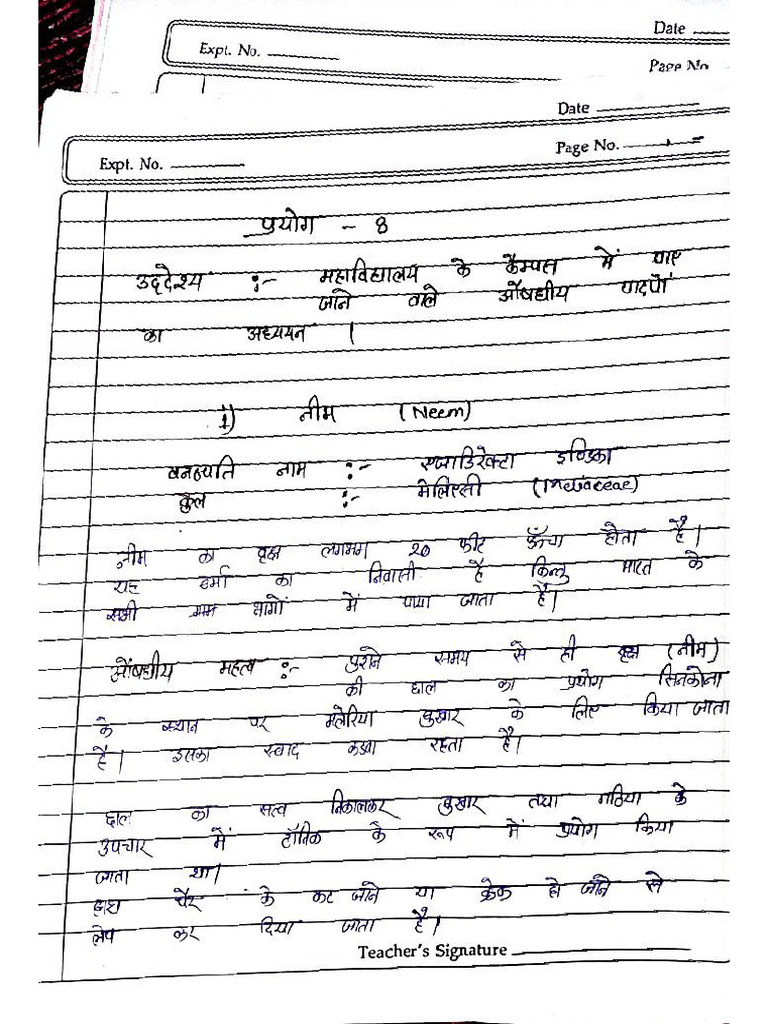 Date
Expt. No.
Page No.
Date
Page No.
Expt. No.
प्रयोग - 8
उद्देश्य :- महाविद्यालय के कैम्पस में पाए
जाने वाले औषधीय पादपों
का अध्ययन |
1) नीम (Neem)
वनस्पति नाम :- एजाडिरेक्टा इण्डिका
कुल :- मेलिएसी
नीम का वृक्ष लगभग 20 फीट ऊँचा होता है।
यह बर्मा का निवासी है किन्तु भारत के
सभी गर्म भागों में पाया जाता है।
औषधीय महत्व :- पुराने समय से ही वृक्ष (नीम)
की छाल का प्रयोग सिनकोना
के स्थान पर मलेरिया बुखार के लिए किया जाता
है। इसका स्वाद कड़वा रहता है।
छाल का सत्व निकालकर बुखार तथा गठिया के
उपचार में टॉनिक के रूप में प्रयोग किया
जाता था।
पैर के कट जाने या क्रेक हो जाने से
लेप कर दिया जाता है।
Teacher's Signature